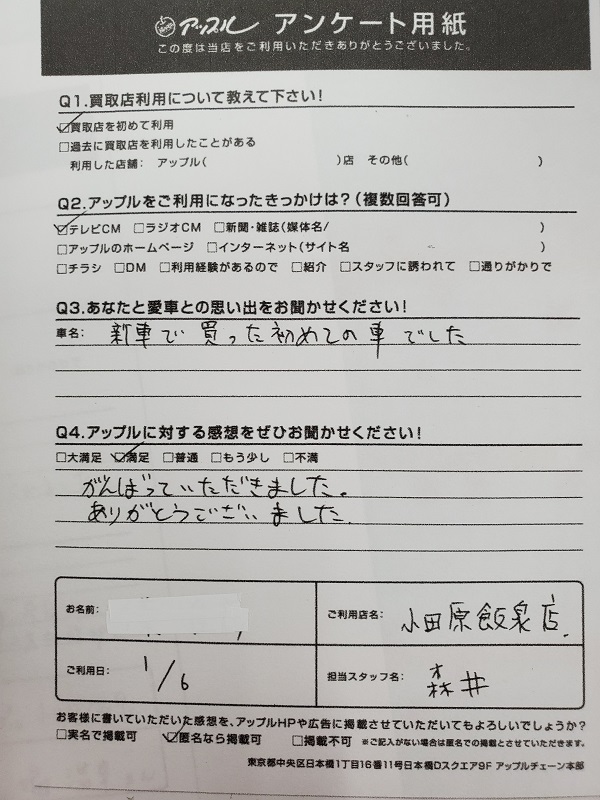 アップル アンケート用紙
この度は当店をご利用いただきありがとうございました。
Q1.買取店利用について教えて下さい!
☑買取店を初めて利用
□過去に買取店を利用したことがある
利用した店舗: アップル( )店 その他( )
Q2.アップルをご利用になったきっかけは?(複数回答可)
☑テレビCM □ラジオCM □新聞・雑誌(媒体名/ )
□アップルのホームページ □インターネット(サイト名 )
□チラシ □DM □利用経験があるので □紹介 □スタッフに誘われて □通りがかりで
Q3.あなたと愛車との思い出をお聞かせください!
車名: 新車で買った初めての車でした
Q4.アップルに対する感想をぜひお聞かせください!
□大満足 ☑満足 □普通 □もう少し □不満
がんばっていただきました。
ありがとうございました.
お名前:
ご利用店名: 小田原飯泉店.
ご利用日: 1/6
担当スタッフ名: 森井
お客様に書いていただいた感想を、アップルHPや広告に掲載させていただいてもよろしいでしょうか?
□実名で掲載可 ☑匿名なら掲載可 □掲載不可 ※ご記入がない場合は匿名での掲載とさせていただきます。
東京都中央区日本橋1丁目16番11号日本橋Dスクエア9F アップルチェーン本部